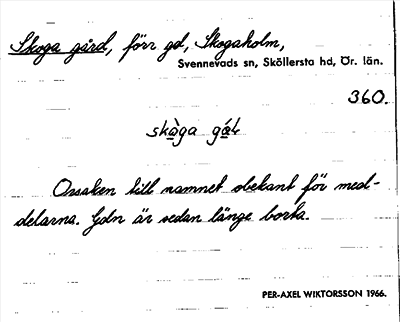 Skoga gård, förr gd, Skogaholm,
Svennevads sn, Sköllersta hd, Ör. län.
360.
skàga gá
Orsaken till namnet obekant för med-
delarna. Gdn är sedan länge borta.
PER-AXEL WIKTORSSON 1966.